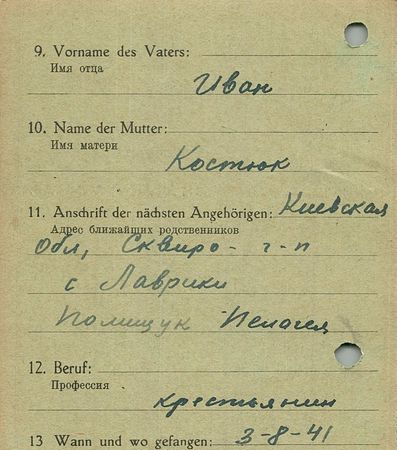 9. Vorname des Vaters:
Имя отца
Иван
10. Name der Mutter:
Имя матери
Костюк
11. Anschrift der nächsten Angehörigen: Киевская
Адрес ближайших родственников
обл, Сквиро-
с Лаврики
Полищук Пелагея
12. Beruf:
Профессия
крестьянин
13 Wann und wo gefangen: 3-8-41